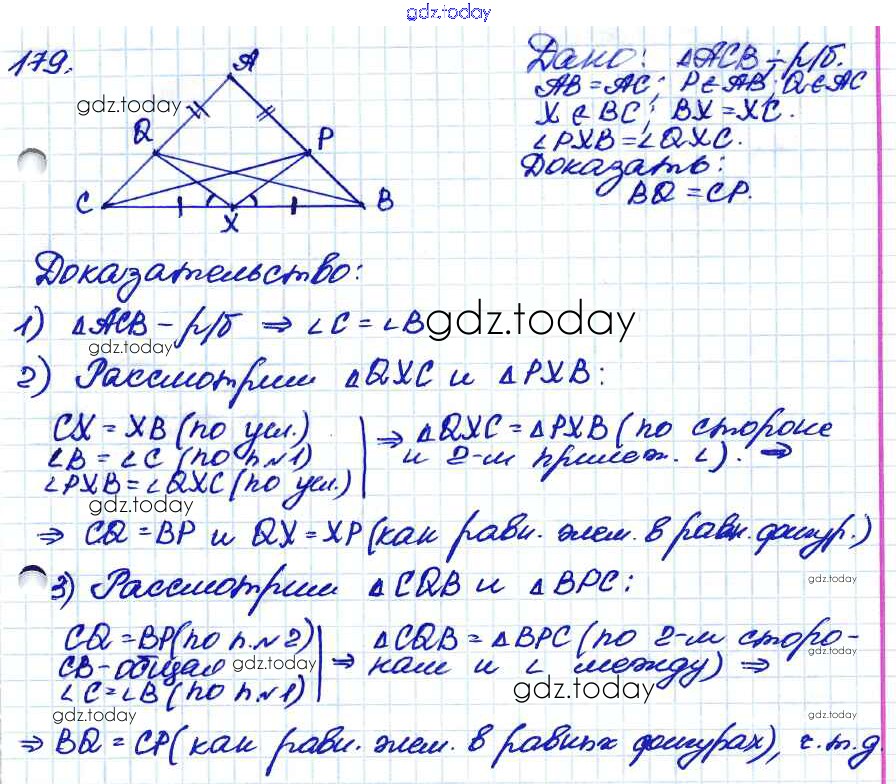 gdz.today
179.
A
gdz.today
Q
P
C
X
B
Дано: △ACB – р/б.
AB = AC; P ∈ AB; Q ∈ AC
X ∈ BC; BX = XC.
∠PXB = ∠QXC.
Доказать:
BQ = CP.
Доказательство:
1) △ACB – р/б ⇒ ∠C = ∠B
gdz.today
gdz.today
2) Рассмотрим △QXC и △PXB:
CX = XB (по усл.)
∠B = ∠C (по п.№1)
∠PXB = ∠QXC (по усл.)
⇒ △QXC = △PXB (по стороне
и 2-м прилеж. ∠). ⇒
gdz.today
⇒ CQ = BP и QX = XP (как равн. элем. в равн. фигур.)
gdz.today
3) Рассмотрим △CQB и △BPC:
CQ = BP (по п.№2)
CB – общая
∠C = ∠B (по п.№1)
gdz.today
⇒ △CQB = △BPC (по 2-м сторо-
нам и ∠ между) ⇒
gdz.today
gdz.today
gdz.today
gdz.today
⇒ BQ = CP (как равн. элем. в равных фигурах), ч.т.д.
gdz.today